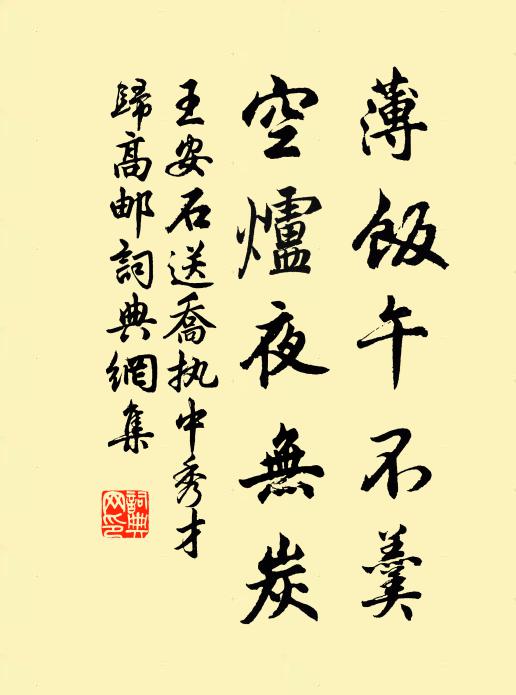 薄飯午不羹
空爐夜無炭
王安石送喬执中秀才
歸高邮詞典網集
詞典网印